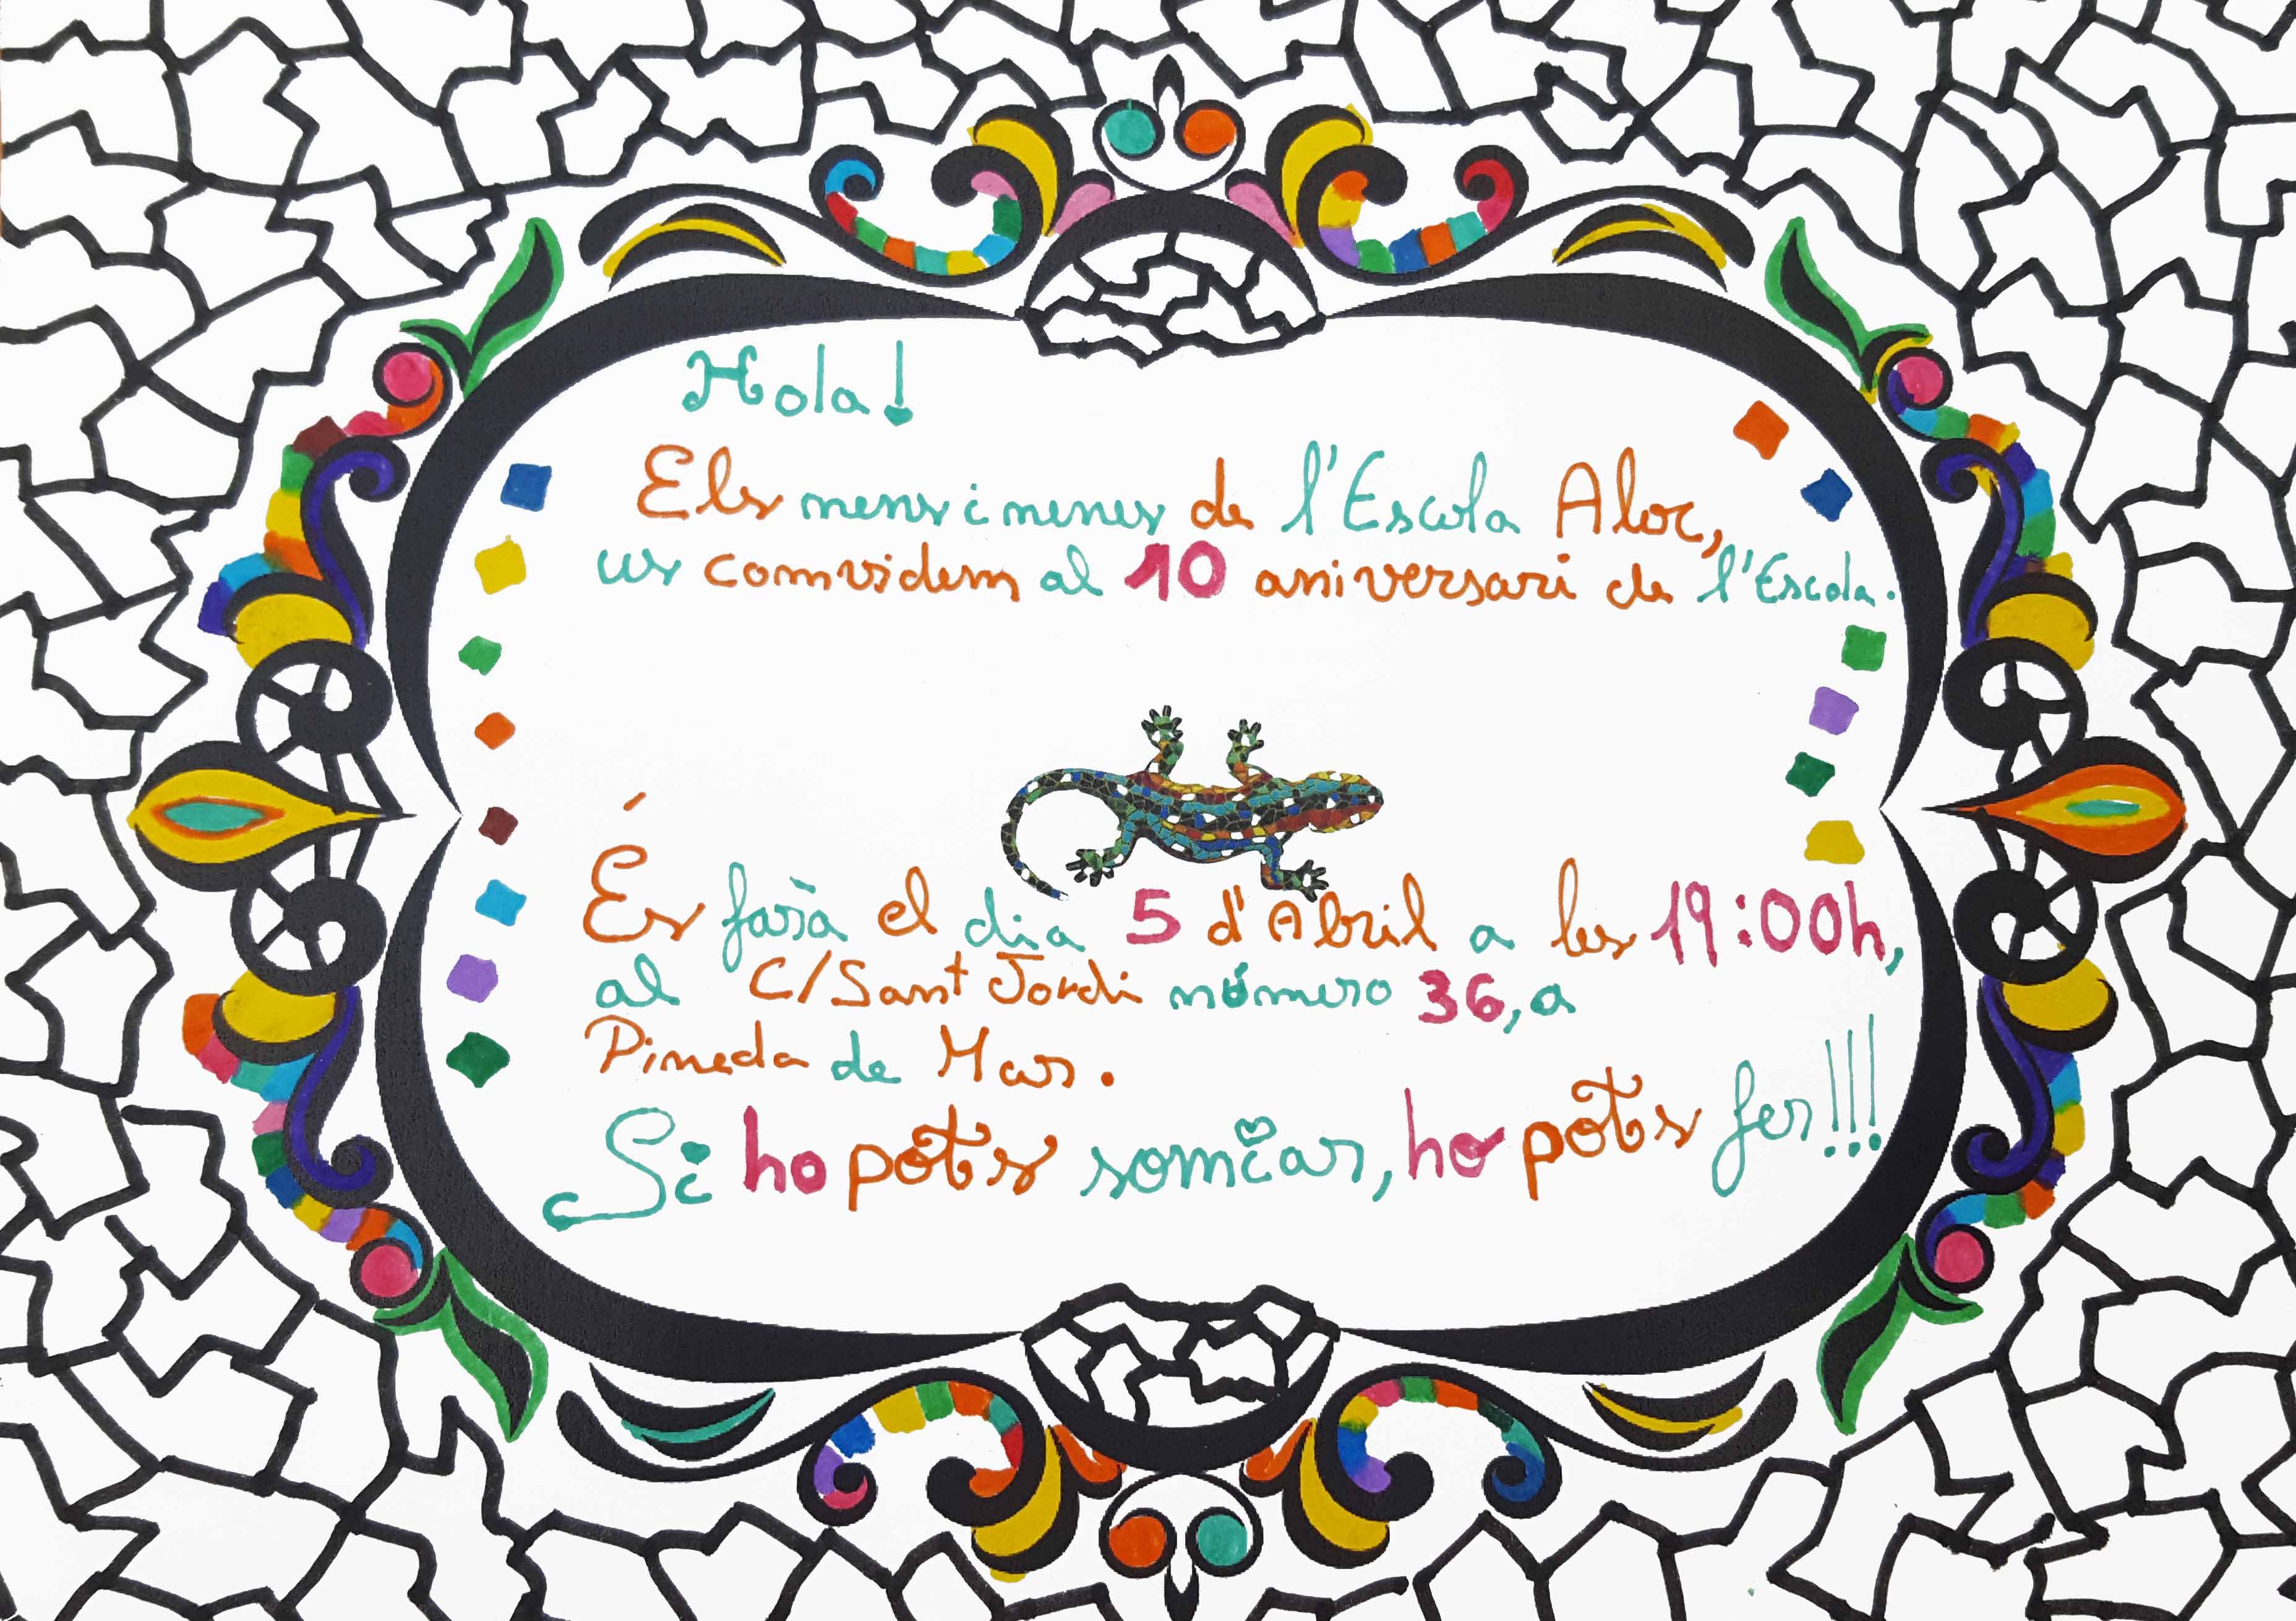 Hola!
Els nens i nenes de l'Escola Aloc,
us convidem al 10 aniversari de l'Escola.
És farà el dia 5 d'Abril a les 19:00h,
al C/Sant Jordi número 36, a
Pineda de Mar.
Si ho pots somiar, ho pots fer!!!